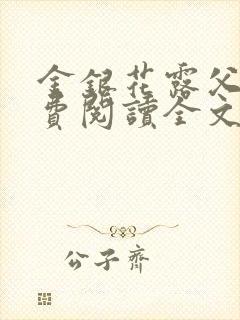 金銀花露父
費閱讀全文
公子齊